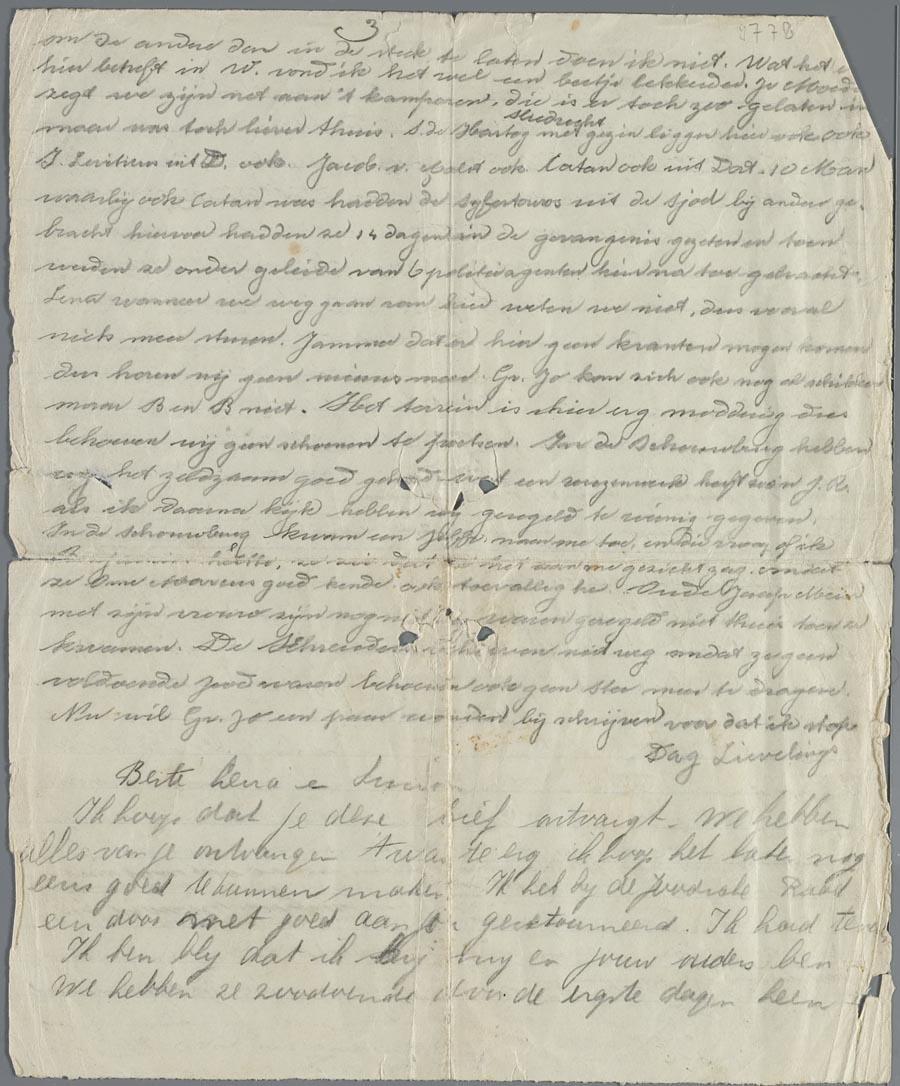 3
977B
om de andere dan in de steek te laten doen ik niet. Wat het
hier betreft in W. vond ik het wel een beetje Je Moeder
zegt we zijn net aan 't kamperen, die is er toch zoo gelaten in
Sliedrecht
maar was toch liever thuis. S. de Hartog met gezin liggen hier ook ook
J. Levitius uit D. ook. Jacob v. ook Catan ook uit Dat. 10 Man
waarbij ook Catan was hadden de uit de sjoel bij andere ge-
bracht hiervoor hadden ze 14 dagen in de gevangenis gezeten en toen
werden ze onder geleide van 6 politieagenten hier na toe gebracht.
Lena wanneer we weg gaan van hier weten we niet, dus vooral
niets meer sturen. Jammer dat er hier geen kranten mogen komen
dus horen wij geen nieuws meer. Gr. Jo kan zich ook nog al schikken
maar B en B niet. Het terrein is hier erg modderig dus
behoeven wij geen schoenen te poetsen. In de Schouwburg hebben
wij het zeldzaam goed gehad wat een reuzenwerk heeft van J. R.
als ik daarna kijk hebben wij geregeld te weinig gegeven.
In de Schouwburg kwam een juffr. naar me toe, en die vroeg of ik
heette, ze zei dat ze het aan me gezicht zag omdat
ze Ome Maurits goed kende. ook toevallig he. Oude Joseph
met zijn vrouw zijn nog waren geregeld niet thuis toen ze
kwamen. De niet weg omdat ze geen
voldoende jood waren behoeven ook geen ster meer te dragen.
Nu wil Gr. Jo een paar woorden bij schrijven voor dat ik stop
Dag Lievelings
Beste Lena e
Ik hoop dat je deze brief ontvangt. We hebben
alles van je ontvangen 't was te erg ik hoop het later nog
eens goed te kunnen maken Ik heb bij de Joodsche Raad
een doos met goed aan je geretourneerd. Ik had
Ik ben blij dat ik bij en jouw ouders ben
We hebben ze zoodoende door de ergste dagen heen